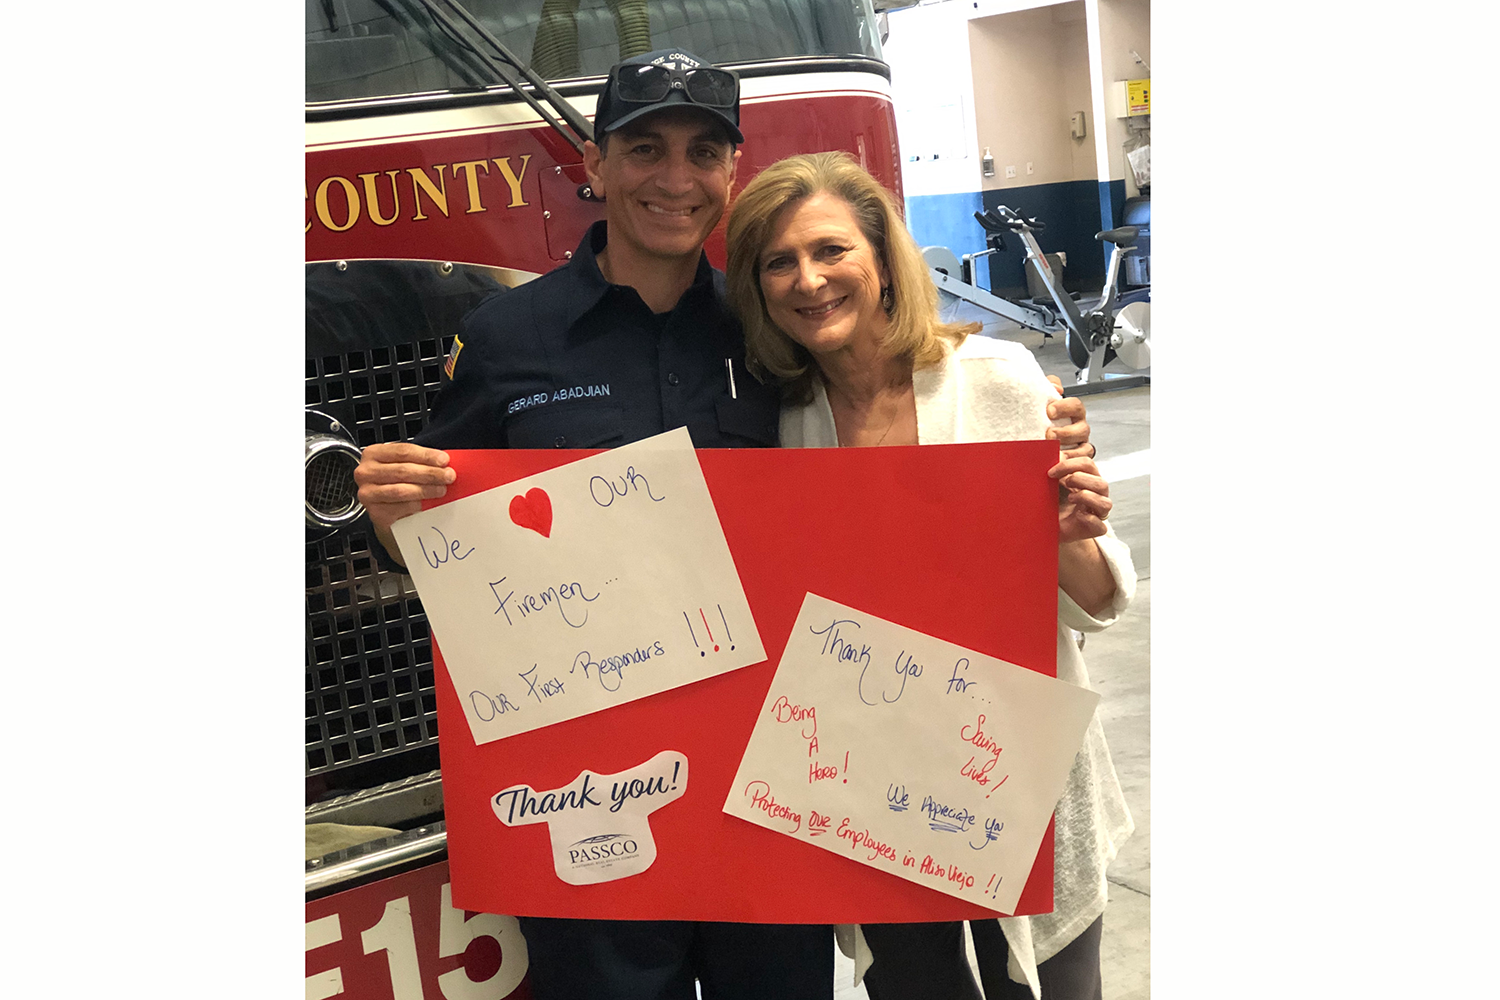 GE COUNTY
COUNTY
GERARD ABADJIAN
We ❤ OUR
Firemen...
OUR FIRST Responders !!!
Thank you!
PASSCO
Thank You for....
Being
A
Hero!
Saving
Lives!
We Appreciate you
Protecting OUR Employees in Aliso Viejo !!
E15